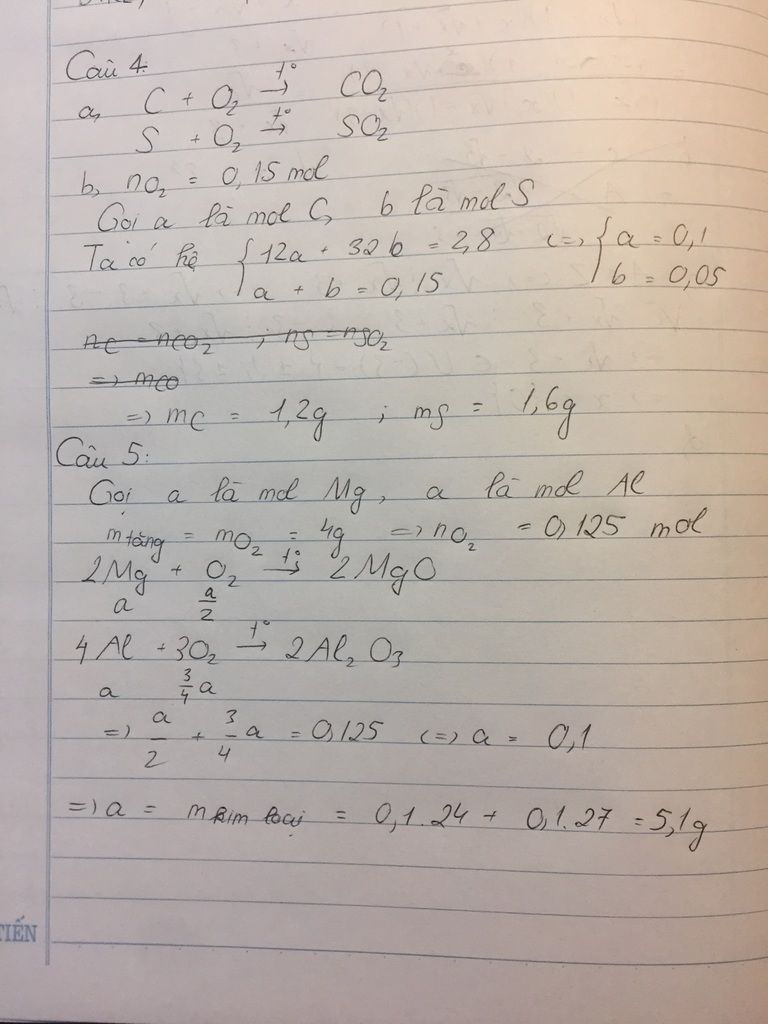 Câu 4:
a, C + O₂ →(t°) CO₂
S + O₂ →(t°) SO₂
b, nO₂ = 0,15 mol
Gọi a là mol C, b là mol S
Ta có hệ { 12a + 32b = 2,8 <=> { a = 0,1
a + b = 0,15 b = 0,05
nC = nCO₂ ; nS = nSO₂
=> mCO
=> mC = 1,2g ; mS = 1,6g
Câu 5:
Gọi a là mol Mg, a là mol Al
m tăng = mO₂ = 4g => nO₂ = 0,125 mol
2Mg + O₂ →(t°) 2MgO
a a/2
4Al + 3O₂ →(t°) 2Al₂O₃
a 3/4 a
=> a/2 + 3/4 a = 0,125 <=> a = 0,1
=> a = m kim loại = 0,1.24 + 0,1.27 = 5,1g
TIẾN